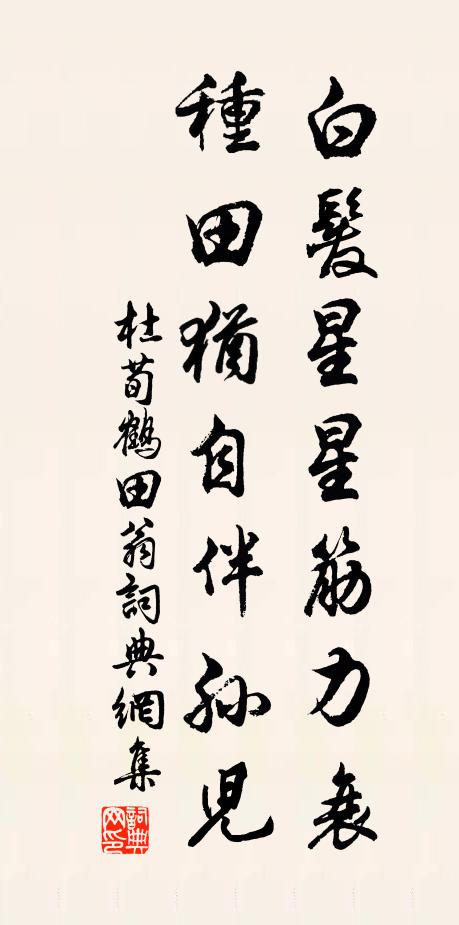 白髮星星筋力衰
種田猶自伴孫兒
杜荀鶴田翁詞典網集
詞典
网印